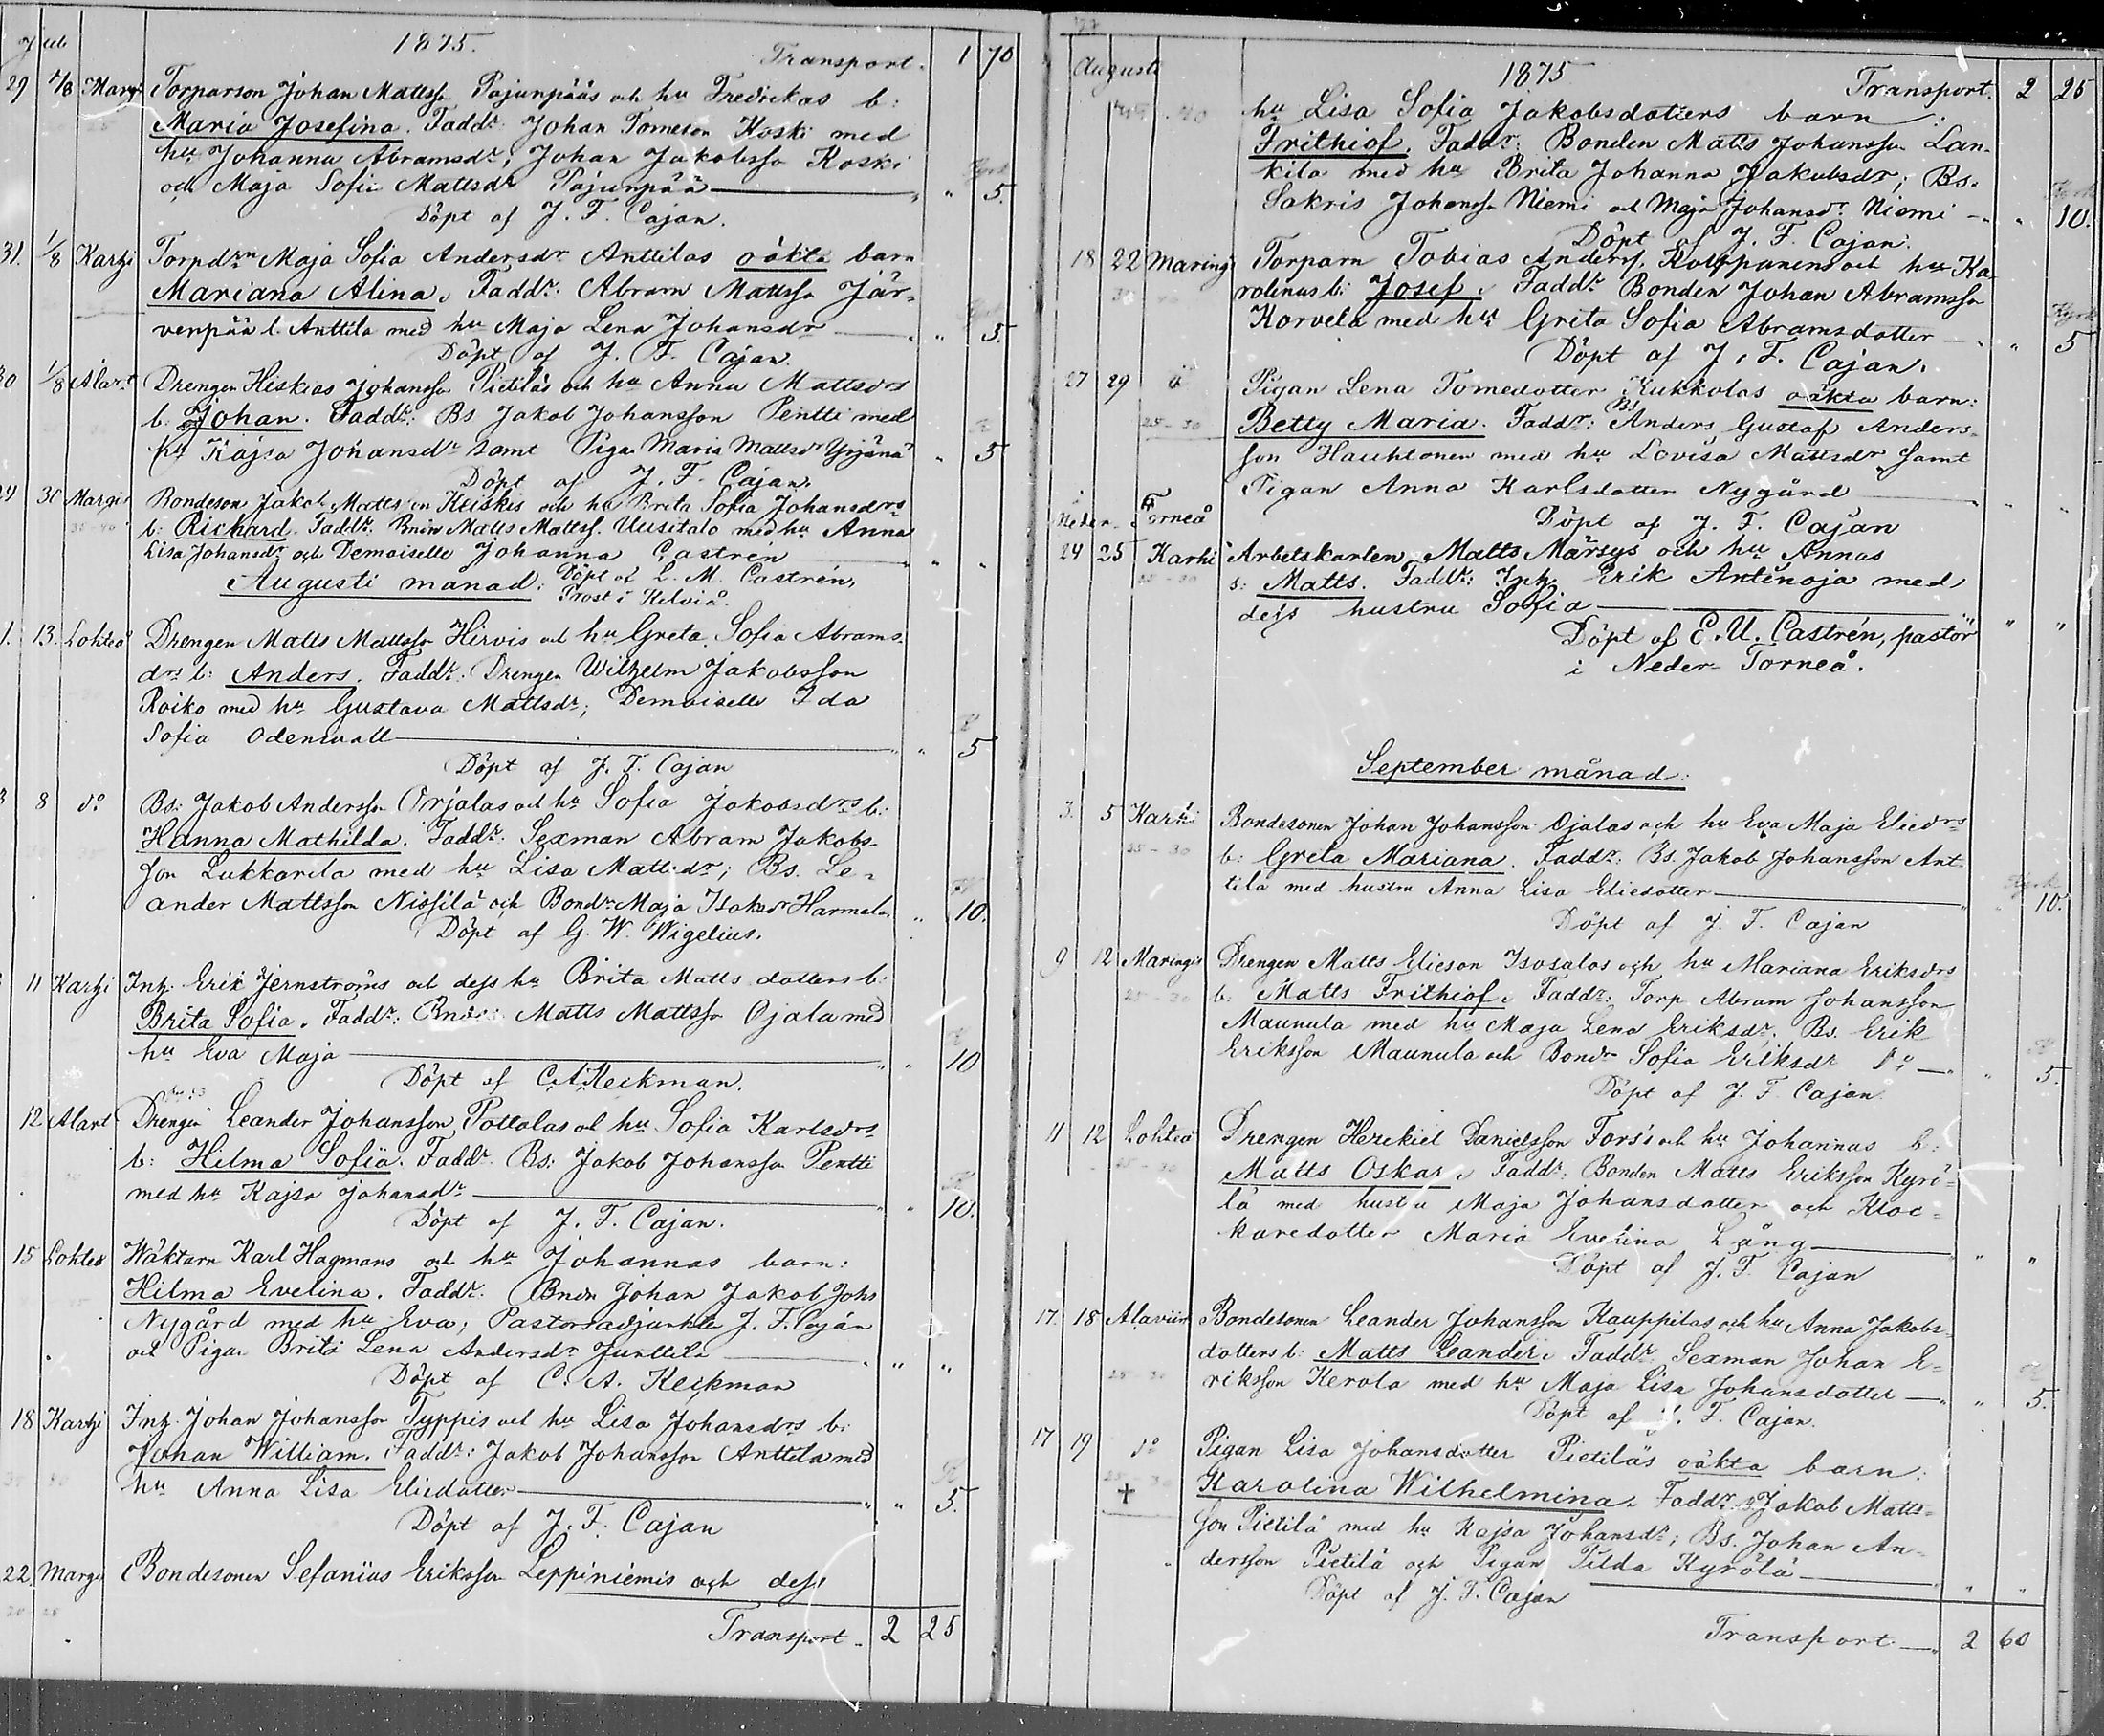 Juli 1875. Transport. 1 70
29 4/8 Marg. Torparson Johan Mattss. Pajunpääs och hu Fredrikas b:
Maria Josefina. Faddr: Johan Tomeson Koski med
hu Johanna Abramsdr; Johan Jakobsso Koski
och Maja Sofia Mattsdr Pajunpää " " 5.
Döpt af J. F. Cajan.
31. 1/8 Karhi Torpdrn Maja Sofia Andersdr Anttilas oäkta barn
Mariana Alina. Faddr: Abram Mattsso Jär-
venpää l. Anttila med hu Maja Lena Johansdr " " 5.
Döpt af J. F. Cajan.
30 1/8 Alart Drengen Hiskias Johansso Pietiläs och hu Anna Mattsdrs
b. Johan. Faddr: Bs Jakob Johansson Pentti med
hu Kajsa Johansdr samt Piga Maria Mattsdr Yrjänä " 5
Döpt af J. F. Cajan.
29 30 Marg. Bondeson Jakob Mattsson Keiskis och hu Brita Sofia Johansdrs
35-40 b: Richard. Faddr. Matts Mattss. Uusitalo med hu Anna
Lisa Johansdr och Demoiselle Johanna Castren " "
Augusti månad: Döpt af L. M. Castrén,
Prost i Kelviå.
1. 13. Lohteå Drengen Matts Mattsso Hirvis och hu Greta Sofia Abrams-
drs b: Anders. Faddr. Drengen Wilhelm Jakobsson
Roiko med hu Gustava Mattsdr; Demoiselle Ida
Sofia Odenwall " " 5
Döpt af J. F. Cajan
8 do Bs: Jakob Andersso Orjalas och hu Sofia Jakobsdrs b:
Hanna Mathilda. Faddr: Sexman Abram Jakobs-
son Lukkarila med hu Lisa Mattsdr; Bs. Le-
ander Mattsson Nissilä och Bondr Maja Isaksdr Harmala " 10.
Döpt af G. W. Wigelius.
11 Karhi Inh: Erik Jernströms och dess hu Brita Matts dotters b:
Brita Sofia. Faddr: Matts Mattsso Ojala med
hu Eva Maja " " 10
Döpt af C. A. Keckman.
12 Alart Drengen Leander Johansson Pottalas och hu Sofia Karlsdrs
b: Hilma Sofia. Faddr. Bs: Jakob Johansso Pentti
med hu Kajsa Johansdr " " 10.
Döpt af J. F. Cajan.
15 Lohteå Wäktarn Karl Hagmans och hu Johannas barn:
Hilma Evelina. Faddr. Bndn Johan Jakob Johs
Nygård med hu Eva; Pastorsadjunkte J. F. Cajan
och Pigan Brita Lena Andersdr Junttila " "
Döpt af C. A. Keckman
18 Karhi Inh. Johan Johansso Typpis och hu Lisa Johansdrs b:
Johan William. Faddr: Jakob Johansson Anttila med
hu Anna Lisa Eliedotter " " 5.
Döpt af J. F. Cajan
22. Marg. Bondesonen Sefanius Eriksson Leppiniemis och dess
Transport. 2 25
Augusti 1875 Transport. 2 25
hu Lisa Sofia Jakobsdotters barn:
Frithiof. Faddr: Bonden Matts Johansson Lan-
kila med hu Brita Johanna Jakobsdr; Bs.
Sakris Johansso Niemi och Maja Johansdr Niemi " 10.
Döpt af J. F. Cajan.
18 22 Maringi Torparn Tobias Anderss. Korppinens och hu Ka-
rolinas b: Josef. Faddr Bonden Johan Abramsso
Korvela med hu Greta Sofia Abramsdotter " 5
Döpt af J. F. Cajan.
27 29 Pigan Lena Tomedotter Kukkolas oäkta barn:
25-30 Betty Maria. Faddr: Bs Anders Gustaf Anders-
son Hauhtonen med hu Lovisa Mattsdr samt
Pigan Anna Karlsdotter Nygård " "
i Neder-Torneå Döpt af J. F. Cajan
24 25 Karhi Arbetskarlen Matts Märsys och hu Annas
25-30 s: Matts. Faddr: Inh. Erik Antinoja med
dess hustru Sofia " "
Döpt af E. U. Castrén, pastor
i Neder-Torneå.
September månad:
3. 5 Karhi Bondesonen Johan Johansson Ojalas och hu Eva Maja Eliedrs
25-30 b: Greta Mariana. Faddr: Bs. Jakob Johansson Ant-
tila med hustru Anna Lisa Eliedotter " 10.
Döpt af J. F. Cajan
9 12 Maringi Drengen Matts Elieson Isosalos och hu Mariana Eriksdrs
25-30 b. Matts Frithiof. Faddr: Torp Abram Johansson
Maunula med hu Maja Lena Eriksdr; Bs. Erik
Eriksson Maunula och Bondr Sofia Eriksdr do " 5.
Döpt af J. F. Cajan
11 12 Lohteå Drengen Hezekiel Danielsson Fors's och hu Johannas b:
25-30 Matts Oskar. Faddr: Bonden Matts Eriksson Kyrö-
lä med hustru Maja Johansdotter och Kloc-
karedotter Maria Evelina Lång " "
Döpt af J. F. Cajan
17. 18 Alaviir Bondesonen Leander Johansson Kauppilas och hu Anna Jakobs-
dotters b: Matts Leander. Faddr Sexman Johan E-
riksson Kerola med hu Maja Lisa Johansdotter " 5.
Döpt af J. F. Cajan.
17 19 do Pigan Lisa Johansdotter Pietiläs oäkta barn:
† Karolina Wilhelmina. Faddr. Jakob Matts-
son Pietilä med hu Kajsa Johansdr; Bs. Johan An-
dersson Pietilä och Pigan Tilda Kyrölä " "
Döpt af J. F. Cajan
Transport 2 60